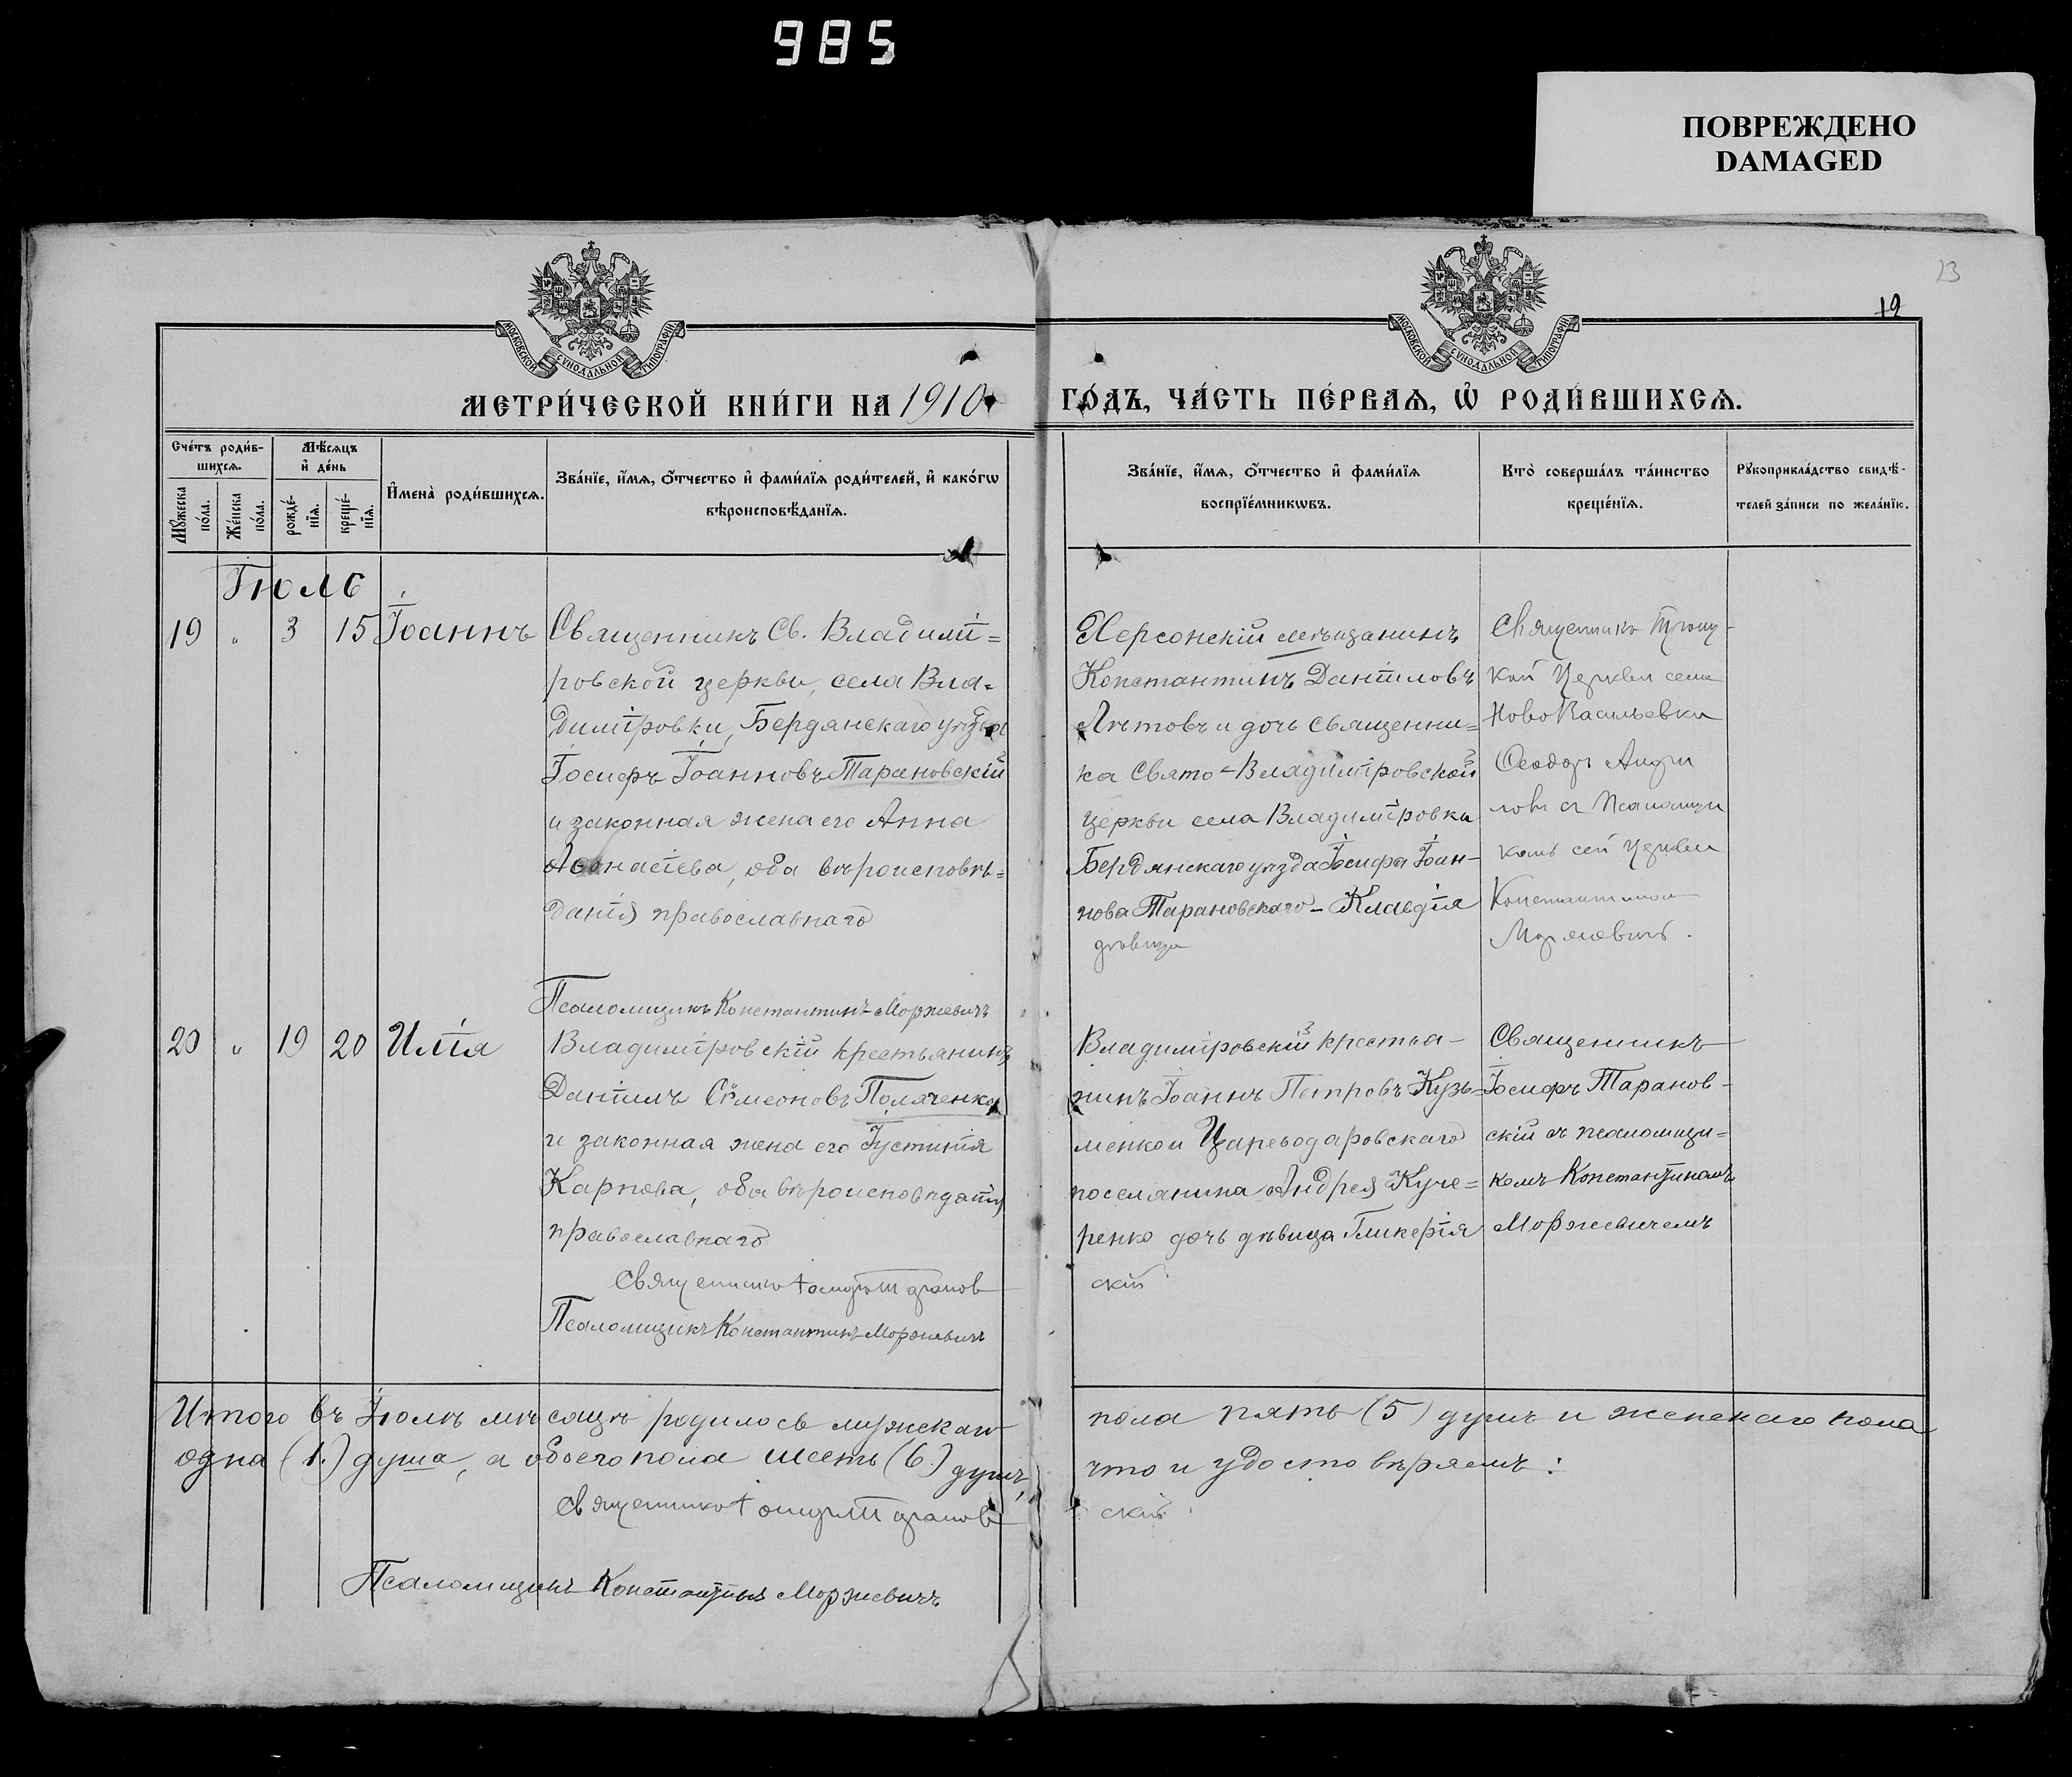 985
ПОВРЕЖДЕНО
DAMAGED
13
12
МОСКОВСКОЙ СѴНОДАЛЬНОЙ ТИПОГРАФІИ
МОСКОВСКОЙ СѴНОДАЛЬНОЙ ТИПОГРАФІИ
МЕТРИ́ЧЕСКОЙ КНИ́ГИ НА 1910 ГО́ДЪ, ЧА́СТЬ ПЕ́РВАѦ, Ѽ РОДИ́ВШИХСѦ.
Сче́тъ роди́в-
шихсѧ.
Мѣ́сѧцъ
и҆ де́нь
Мꙋ́жеска
по́ла.
Же́нска
по́ла.
рожде́-
нїѧ.
креще́-
нїѧ.
И҆мена̀ роди́вшихсѧ.
Зва́нїе, и҆́мѧ, ѻ҆́тчество и҆ фами́лїѧ роди́телей, и҆ како́гѡ
вѣроисповѣ́данїѧ.
Зва́нїе, и҆́мѧ, ѻ҆́тчество и҆ фами́лїѧ
воспрїе́мникѡвъ.
Кто̀ соверша́лъ та́инство
креще́нїѧ.
Рꙋкоприкла́дство свидѣ́-
телей за́писи по жела́нїю.
Іюль
19 " 3 15 Іоаннъ
Священникъ Св. Владимі=
ровской церкви, села Вла=
димировки, Бердянскаго уѣзда
Іосифъ Іоанновъ Тарановскій
и законная жена его Анна
Аѳанасіева, оба вѣроисповѣ=
данія православнаго
Псаломщикъ Константинъ Моржевичъ
Херсонскій мѣщанинъ
Константинъ Даніиловъ
Лѣтовъ и дочь священни=
ка Свято-Владиміровской
церкви села Владиміровки
Бердянскаго уѣзда Іосифа Іоан-
нова Тарановскаго - Клавдія
дѣвица
Священникъ Троиц-
кой Церкви села
НовоВасильевки
Ѳеодоръ
съ Псаломщи
комъ сей Церкви
Константином
20 " 19 20 Илія
Владиміровскій крестьянинъ
Даніилъ Сѵмеоновъ Поляченко
и законная жена его Іустинія
Карпова, оба вѣроисповѣданія
православнаго
Священникъ Іосифъ Таранов
Псаломщикъ Константинъ Моржевичъ
Владиміровскій крестья-
нинъ Іоаннъ Петровъ Кузь=
менко и Цареводаровскаго
поселянина Андрея Куче=
ренко дочь дѣвица Гликерія
скій
Священникъ
Іосифъ Таранов-
скій съ псаломщи=
комъ Константиномъ
Моржевичемъ
Итого въ Іюлѣ мѣсяцѣ родилось мужскаго пола пять (5) душъ и женскаго пола
одна (1.) душа, а обоего пола шесть (6.) душъ, что и удостовѣряемъ:
Священникъ Іосифъ Таранов скій
Псаломщикъ Константинъ Моржевичъ